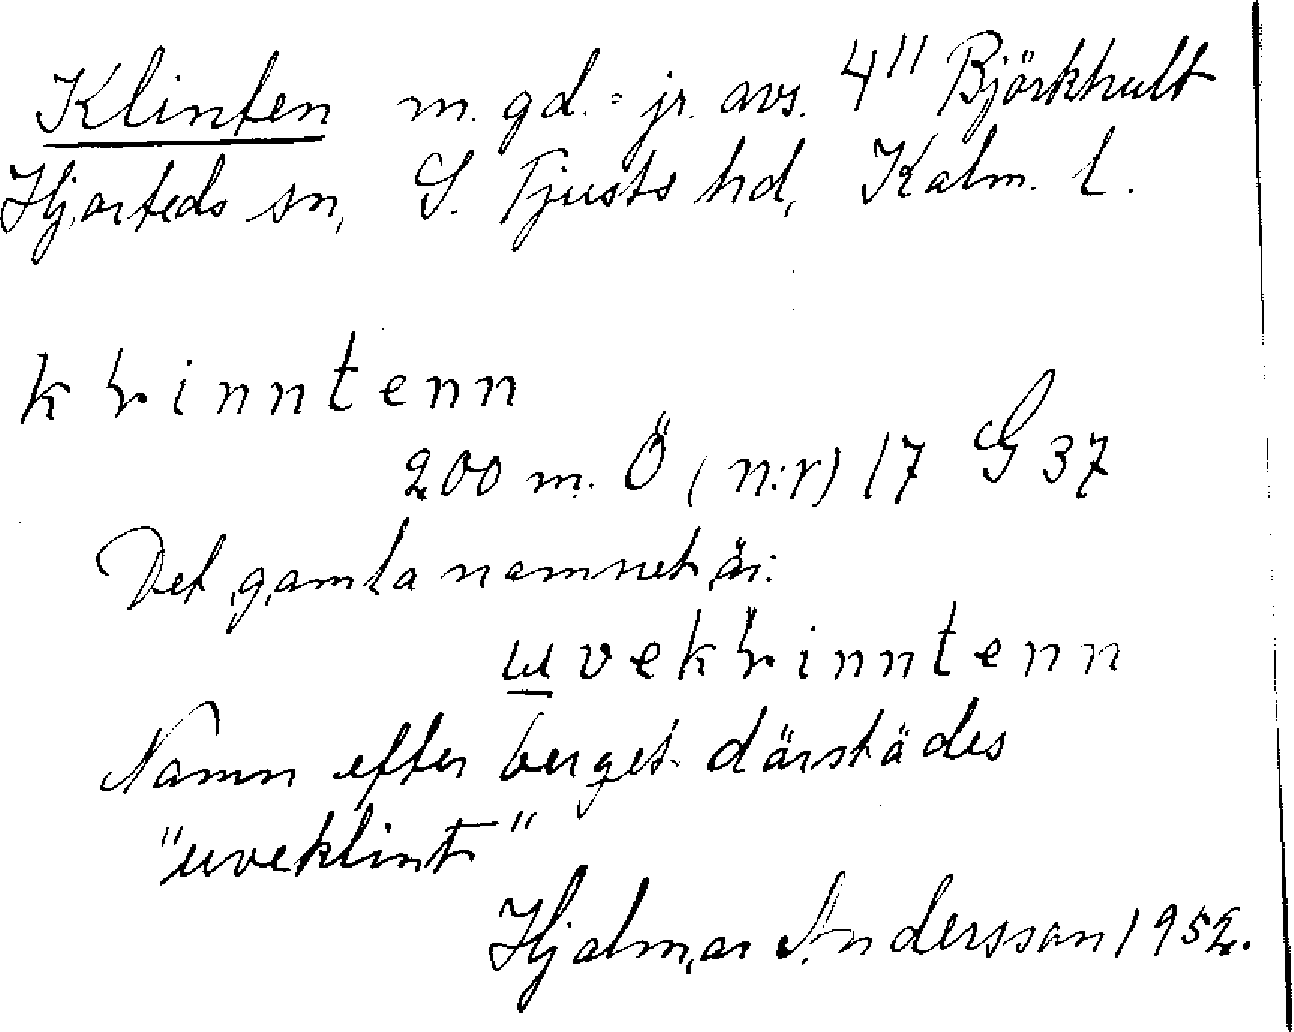 Klinten m. gd. = jr. avs. 4" Björkhult
Hjorteds sn, S. Tjusts hd, Kalm. l.
k l i n n t e n n
200 m. Ö (n:r) 17 G 37
Det gamla namnet är:
u v e k l i n n t e n n
Namn efter berget därstädes
"uveklint"
Hjalmar Andersson 1952.